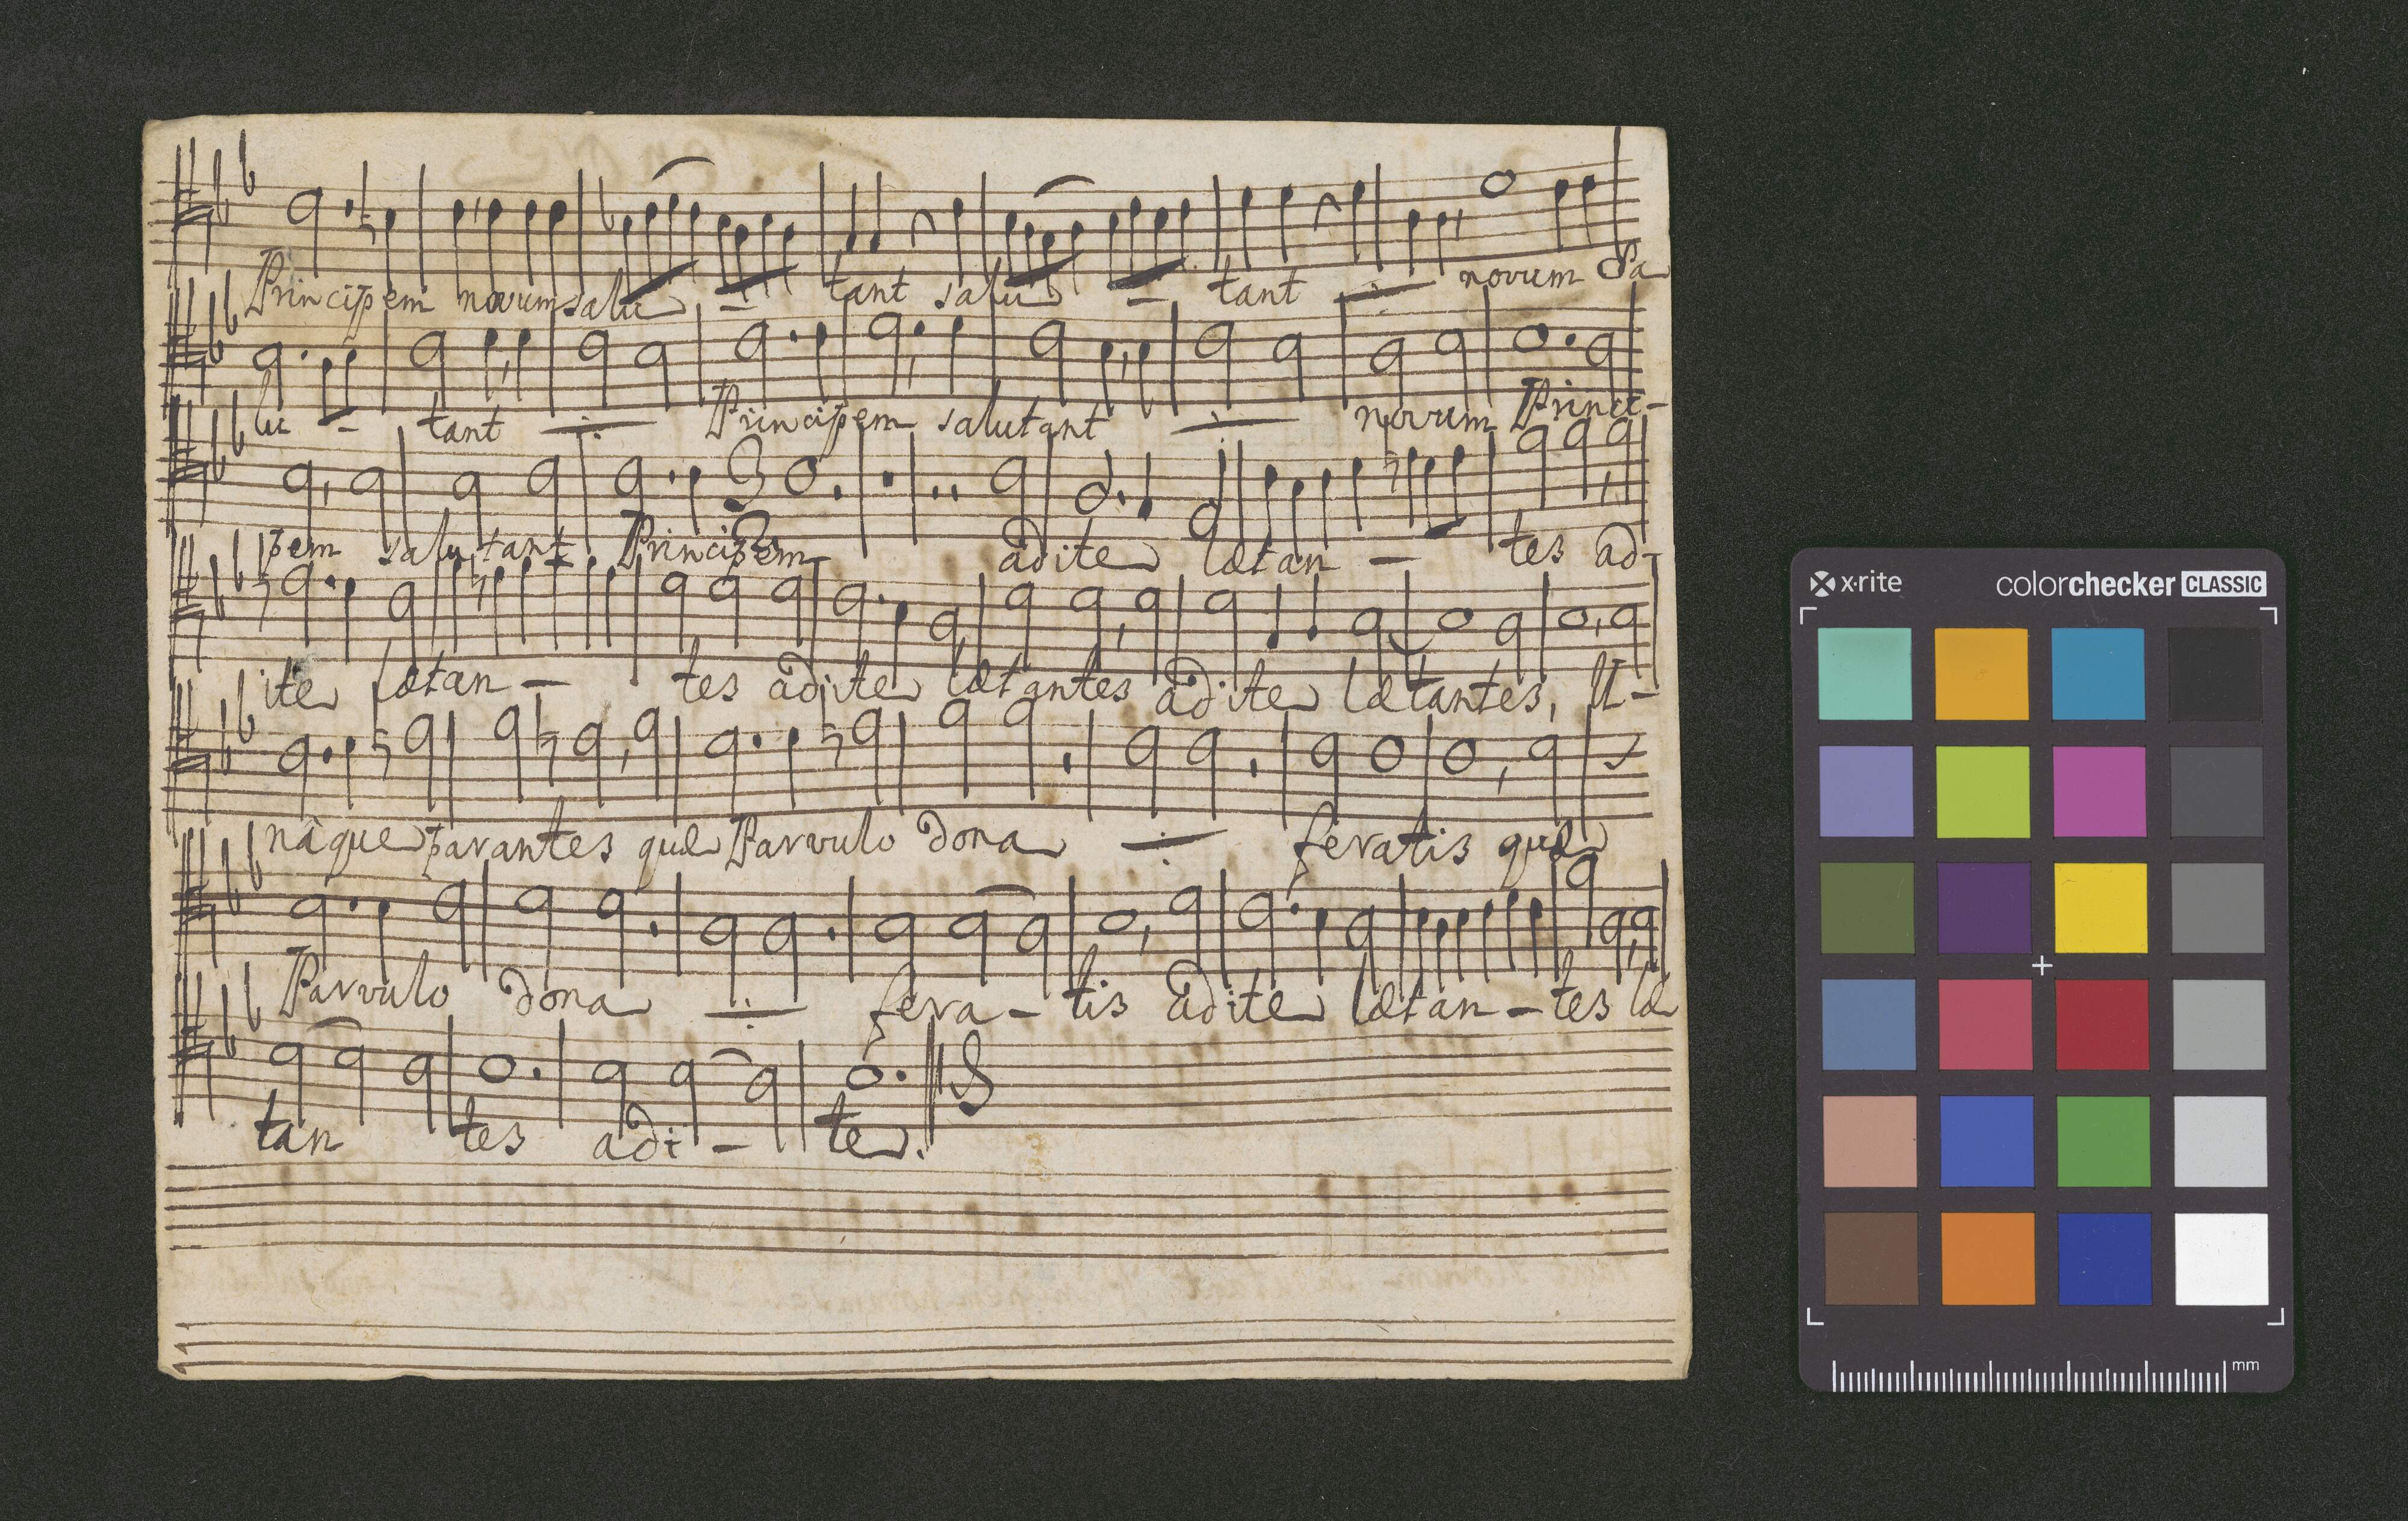 Principem novum salu - tant salu - tant ∸ novum Sa
lu - tant ∸ Principem salutant ∸ novum Princi-
pem salutant Principem adite lætan - tes ad-
ite lætan - tes adite lætantes adite lætantes, U-
nàque parantes quæ Parvulo dona ∸ feratis quæ
Parvulo dona ∸ fera - tis adite lætan - tes læ
tan tes adi - te.
x·rite colorchecker CLASSIC
mm